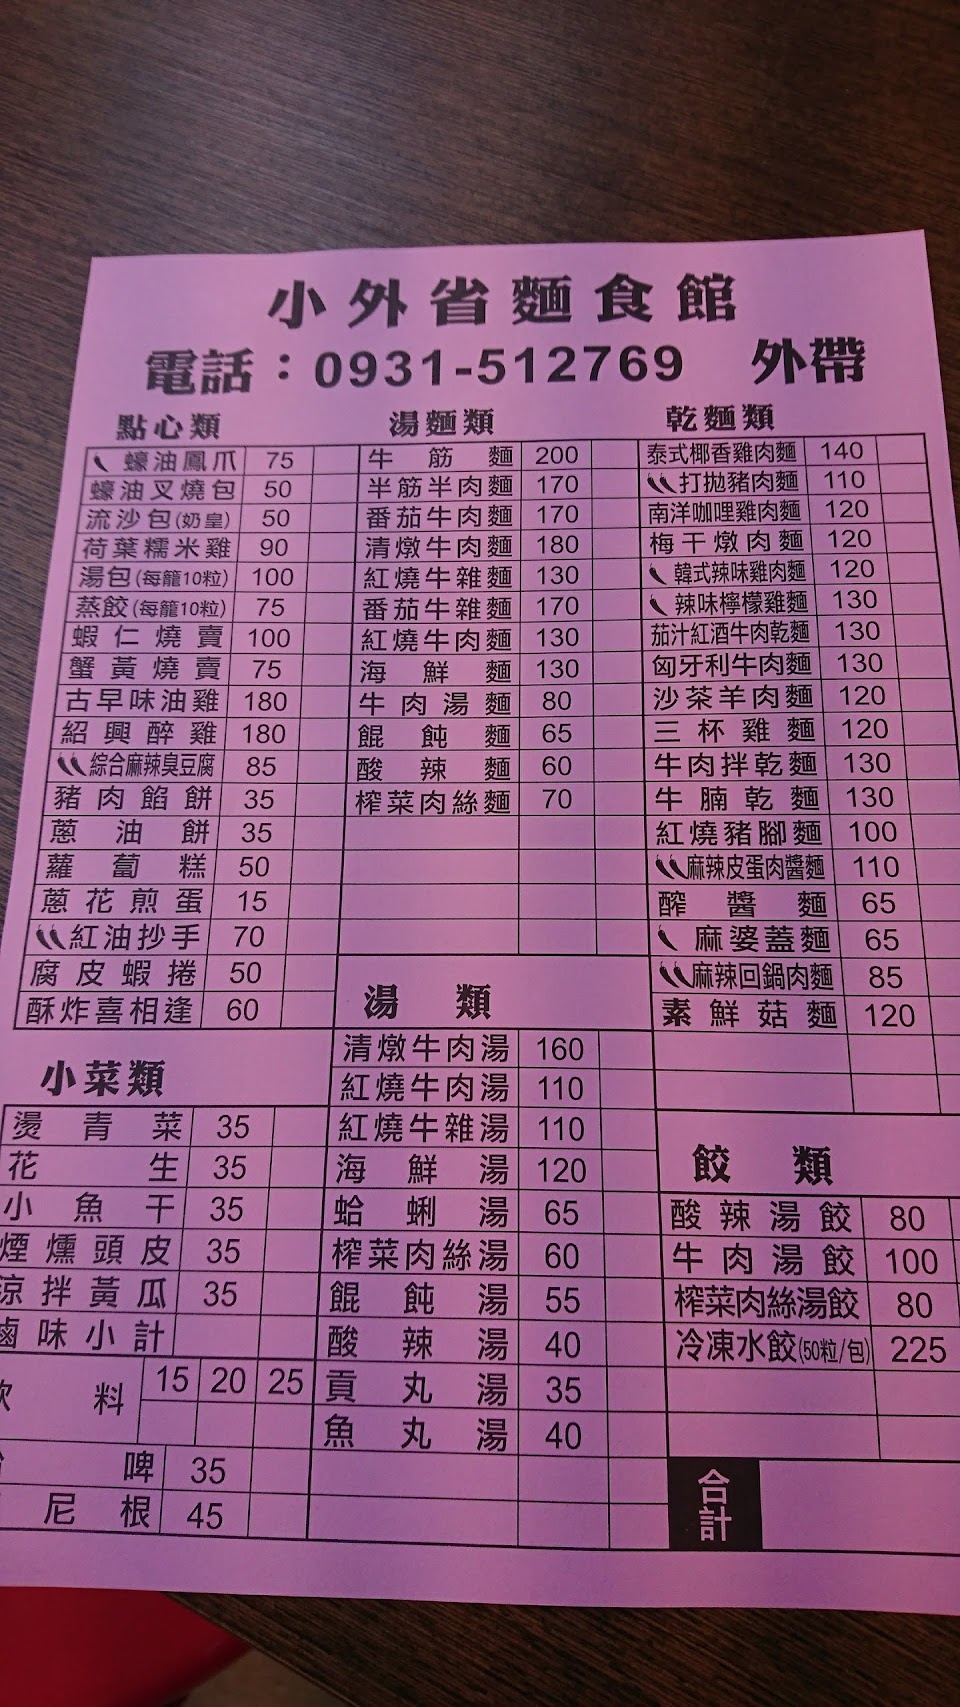 小外省麵食館
電話：0931-512769 外帶
點心類
蠔油鳳爪 75
蠔油叉燒包 50
流沙包(奶皇) 50
荷葉糯米雞 90
湯包(每籠10粒) 100
蒸餃(每籠10粒) 75
蝦仁燒賣 100
蟹黃燒賣 75
古早味油雞 180
紹興醉雞 180
綜合麻辣臭豆腐 85
豬肉餡餅 35
蔥油餅 35
蘿蔔糕 50
蔥花煎蛋 15
紅油抄手 70
腐皮蝦捲 50
酥炸喜相逢 60
小菜類
燙青菜 35
花生 35
小魚干 35
煙燻頭皮 35
涼拌黃瓜 35
滷味小計
飲料 15 20 25
啤 35
尼根 45
湯麵類
牛筋麵 200
半筋半肉麵 170
番茄牛肉麵 170
清燉牛肉麵 180
紅燒牛雜麵 130
番茄牛雜麵 170
紅燒牛肉麵 130
海鮮麵 130
牛肉湯麵 80
餛飩麵 65
酸辣麵 60
榨菜肉絲麵 70
湯類
清燉牛肉湯 160
紅燒牛肉湯 110
紅燒牛雜湯 110
海鮮湯 120
蛤蜊湯 65
榨菜肉絲湯 60
餛飩湯 55
酸辣湯 40
貢丸湯 35
魚丸湯 40
乾麵類
泰式椰香雞肉麵 140
打拋豬肉麵 110
南洋咖哩雞肉麵 120
梅干燉肉麵 120
韓式辣味雞肉麵 120
辣味檸檬雞麵 130
茄汁紅酒牛肉乾麵 130
匈牙利牛肉麵 130
沙茶羊肉麵 120
三杯雞麵 120
牛肉拌乾麵 130
牛腩乾麵 130
紅燒豬腳麵 100
麻辣皮蛋肉醬麵 110
醡醬麵 65
麻婆蓋麵 65
麻辣回鍋肉麵 85
素鮮菇麵 120
餃類
酸辣湯餃 80
牛肉湯餃 100
榨菜肉絲湯餃 80
冷凍水餃(50粒/包) 225
合計